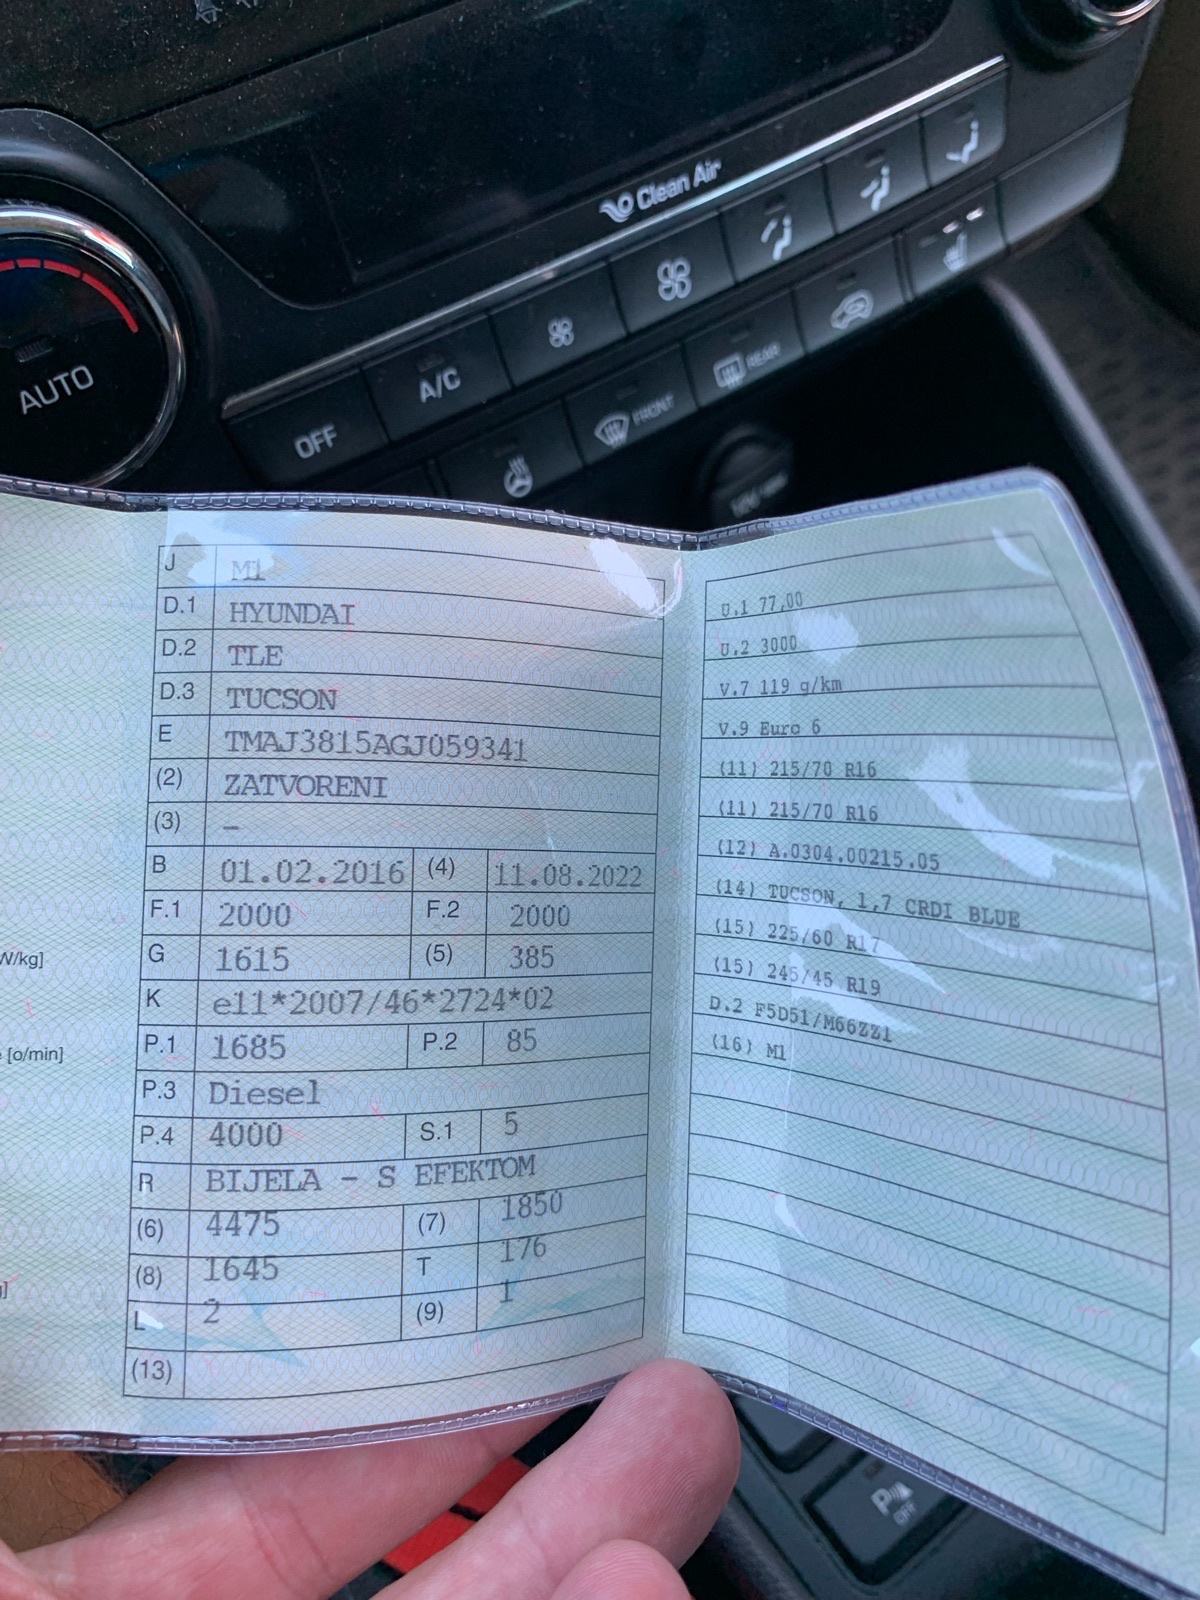 Clean Air
AUTO
OFF
A/C
FRONT
REAR
J M1
D.1 HYUNDAI
D.2 TLE
D.3 TUCSON
E TMAJ3815AGJ059341
(2) ZATVORENI
(3) –
B 01.02.2016 (4) 11.08.2022
F.1 2000 F.2 2000
G 1615 (5) 385
K e11*2007/46*2724*02
P.1 1685 P.2 85
P.3 Diesel
P.4 4000 S.1 5
R BIJELA - S EFEKTOM
(6) 4475 (7) 1850
(8) 1645 T 176
L 2 (9) 1
(13)
W/kg]
[o/min]
U.1 77,00
U.2 3000
V.7 119 g/km
V.9 Euro 6
(11) 215/70 R16
(11) 215/70 R16
(12) A.0304.00215.05
(14) TUCSON, 1,7 CRDI BLUE
(15) 225/60 R17
(15) 245/45 R19
D.2 F5D51/M66ZZ1
(16) M1
P
OFF